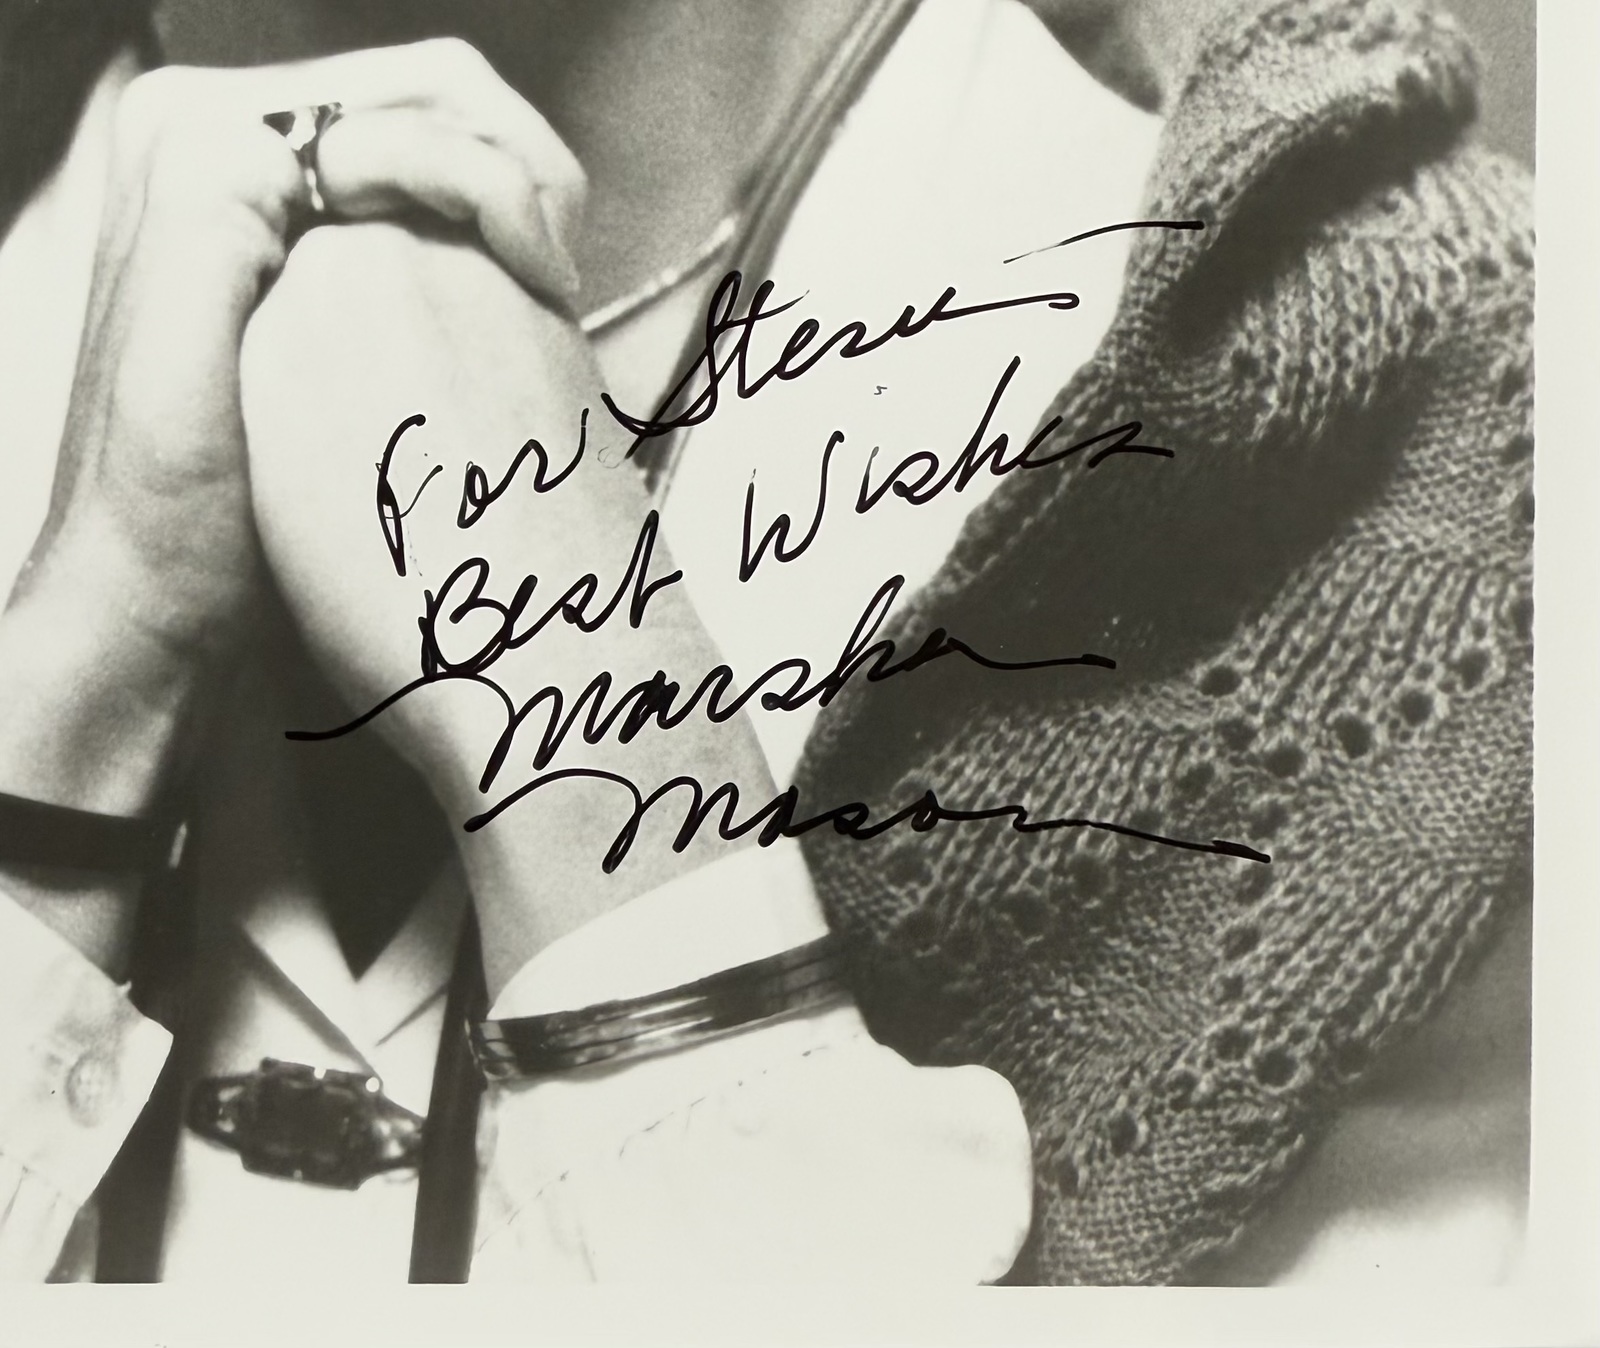 For Steven
Best Wishes
Marsha
Mason